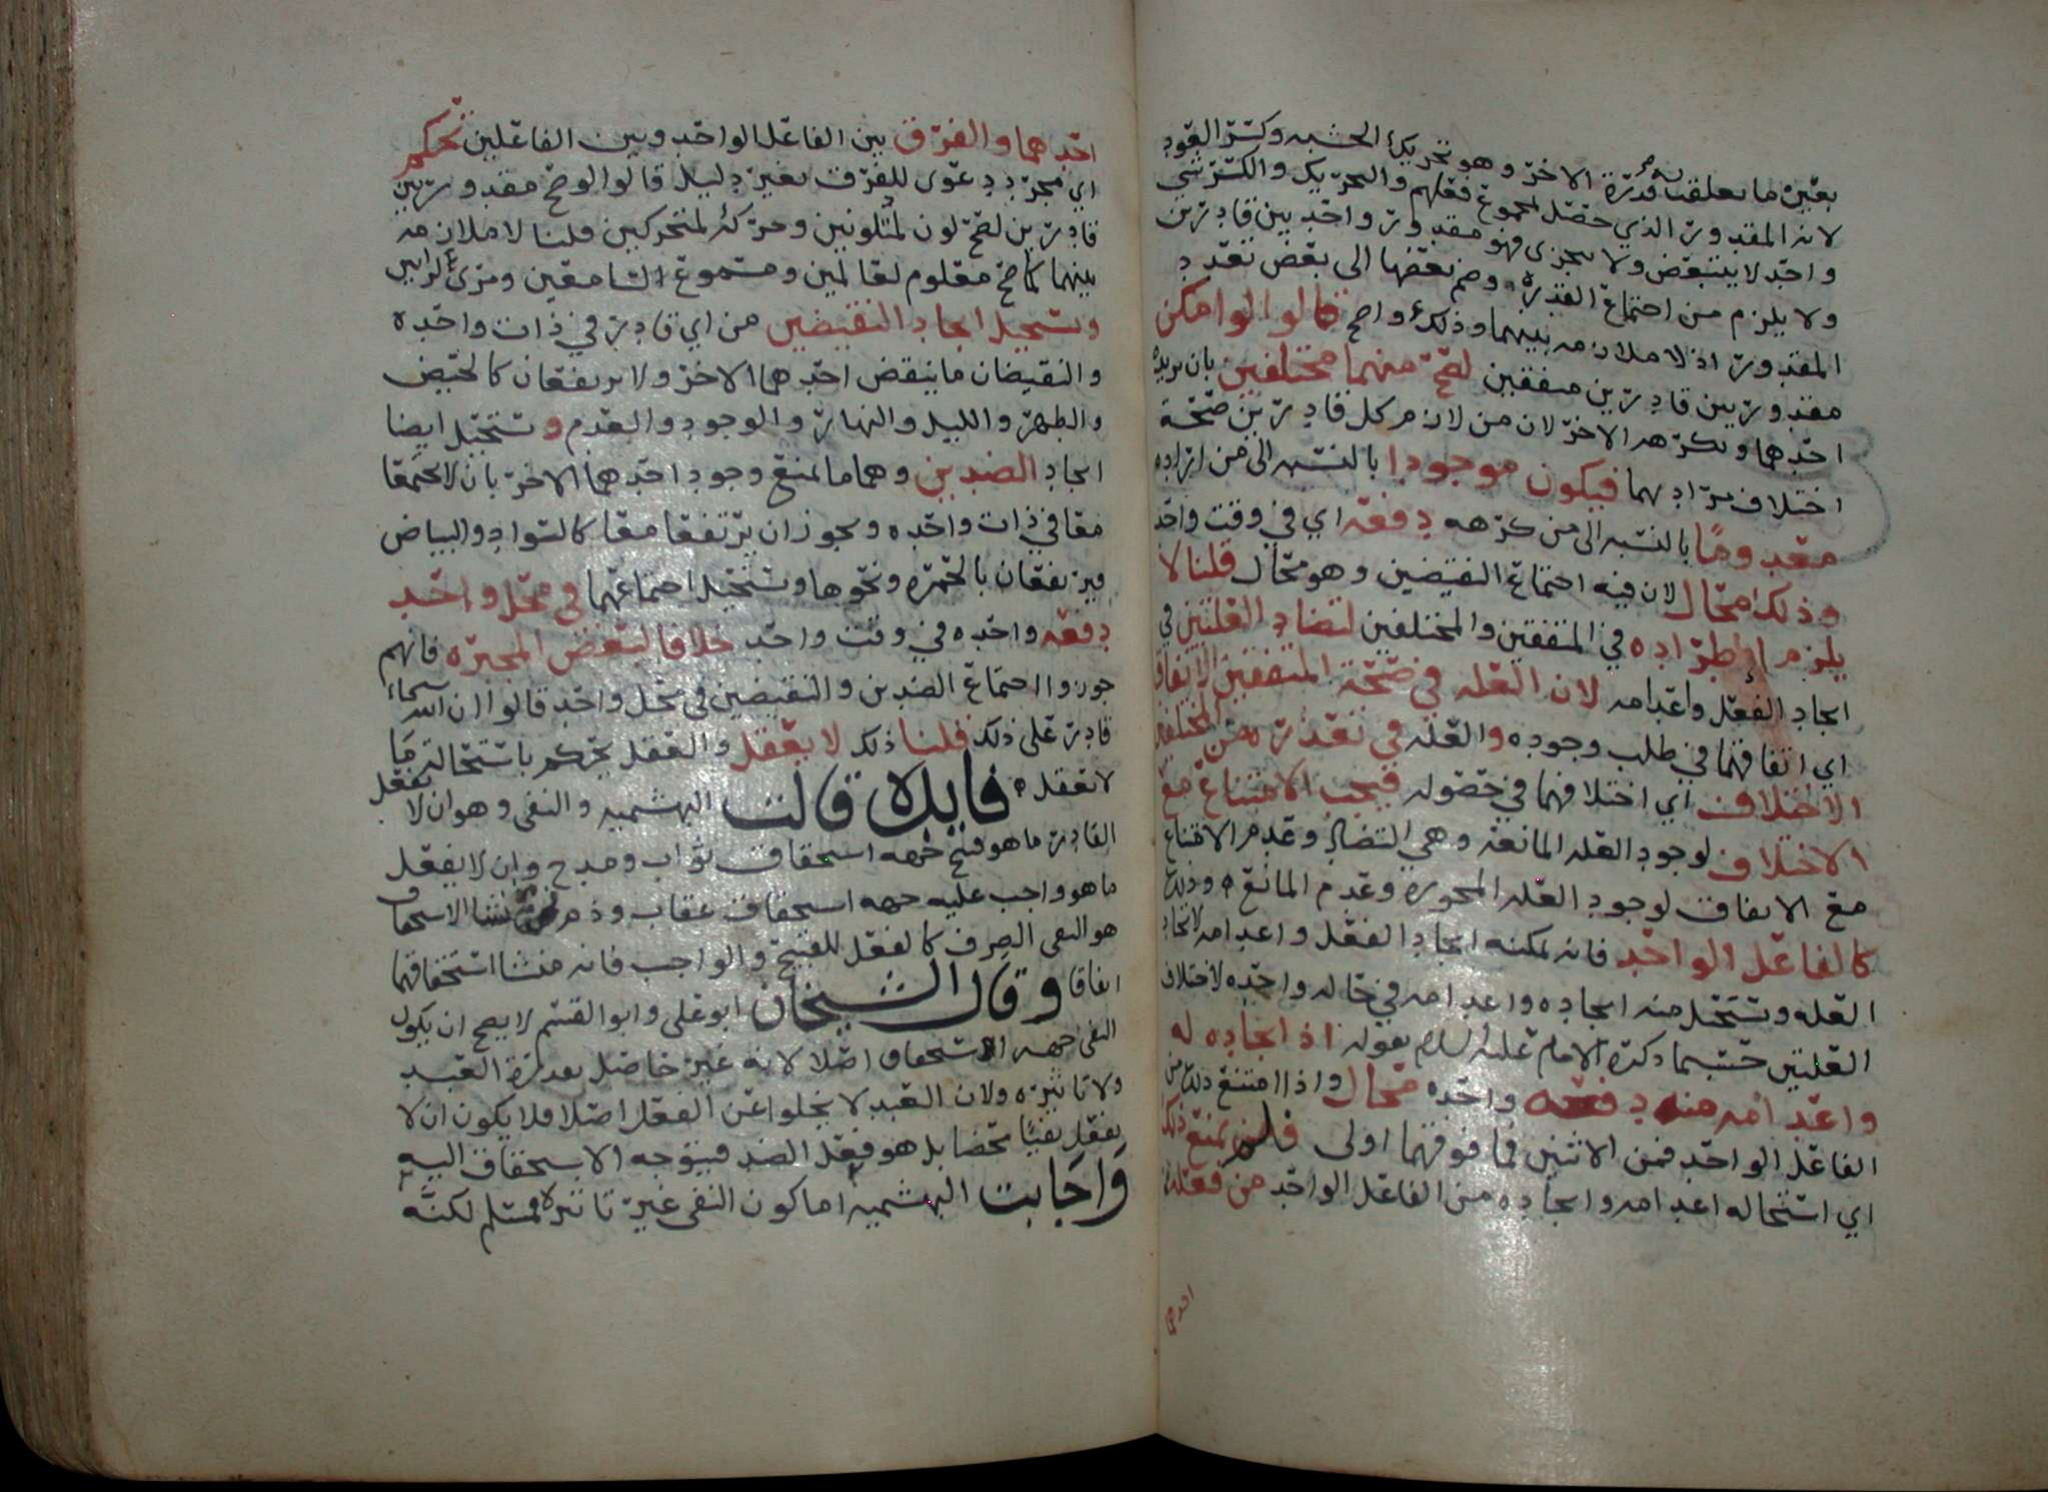 بعين ما تعلقت به قدرة الاخر وهو تحريك الخشبه وكسر العود
لانه المقدور الذي حصل بمجموع فعلهم والتحريك والكسر شي
واحد لا يتبعض ولا يتجزى فهو مقدور واحد بين قادرين
ولا يلزم من اجتماع القدره وضم بعضها الى بعض تعدد
المقدور اذ لا ملازمه بينهما وذلك واضح قالوا لو امكن
مقدور بين قادرين متفقين لصح منهما مختلفين بان يريده
احدهما ويكرهه الاخر لان من لازم كل قادرين صحة
اختلاف مرادهما فيكون موجودا بالنسبه الى من اراده
معدوما بالنسبه الى من كرهه دفعه اي في وقت واحد
وذلك محال لان فيه اجتماع النقيضين وهو محال قلنا لا
يلزم اطراده في المتفقين والمختلفين لتضاد العلتين في
ايجاد الفعل واعدامه لان العله في صحة المتفقين الاتفاق
اي اتفاقهما في طلب وجوده والعله في تعذره من المختلفين
الاختلاف اي اختلافهما في حصوله فيجب الامتناع مع
الاختلاف لوجود العله المانعه وهي التضاد وعدم الامتناع
مع الاتفاق لوجود العله المجوزه وعدم المانع وذلك
كالفاعل الواحد فانه يمكنه ايجاد الفعل واعدامه لاتحاد
العله وتستحيل منه ايجاده واعدامه في حاله واحده لاختلاف
العلتين حسبما ذكره الامام عليه السلام بقوله اذ ايجاده له
واعدامه منه دفعه واحده محال واذا امتنع ذلك من
الفاعل الواحد فمن الاثنين فما فوقهما اولى فلم يمنع ذلك
اي استحاله اعدامه وايجاده من الفاعل الواحد من فعله
احدهما
احدهما والفرق بين الفاعل الواحد وبين الفاعلين تحكم
اي مجرد دعوى للفرق بغير دليل قالوا لو صح مقدور بين
قادرين لصح لون لمتلونين وحركة لمتحركين قلنا لا ملازمه
بينهما كما صح معلوم لعالمين ومسموع لسامعين ومرئ لرائيين
وتستحيل ايجاد النقيضين من اي قادر في ذات واحده
والنقيضان ما ينقض احدهما الاخر ولا يرتفعان كالحيض
والطهر والليل والنهار والوجود والعدم وتستحيل ايضا
ايجاد الضدين وهما ما يمنع وجود احدهما الاخر بان لا يجتمعا
معا في ذات واحده ويجوز ان يرتفعا معا كالسواد والبياض
فيرتفعان بالحمره ونحوها وتستحيل اجتماعهما في محل واحد
دفعه واحده في وقت واحد خلافا لبعض المجبره فانهم
جوزوا اجتماع الضدين والنقيضين في محل واحد قالوا ان الله سبحانه
قادر على ذلك قلنا ذلك لا يعقل والعقل يحكم باستحالة ما
لا يعقله فايده قالت البهشميه والنفي وهو ان لا يفعل
القادر ما هو قبيح جهه استحقاق ثواب ومدح وان لا يفعل
ما هو واجب عليه جهه استحقاق عقاب وذم منشا الاستحقاق
هو النفي الصرف كالفعل للقبيح والواجب فانه منشا استحقاقهما
اتفاقا وقال الشيخان ابو علي وابو القسم لا يصح ان يكون
النفي جهه الاستحقاق اصلا لانه غير حاصل بقدرة العبد
ولا تاثيره ولان العبد لا يخلوا عن الفعل اصلا فلا يكون ان لا
يفعل نفيا محضا بل هو فعل الضد فيتوجه الاستحقاق اليه
واجابت البهشميه اما كون النفي غير تاثيره فمسلم لكنه